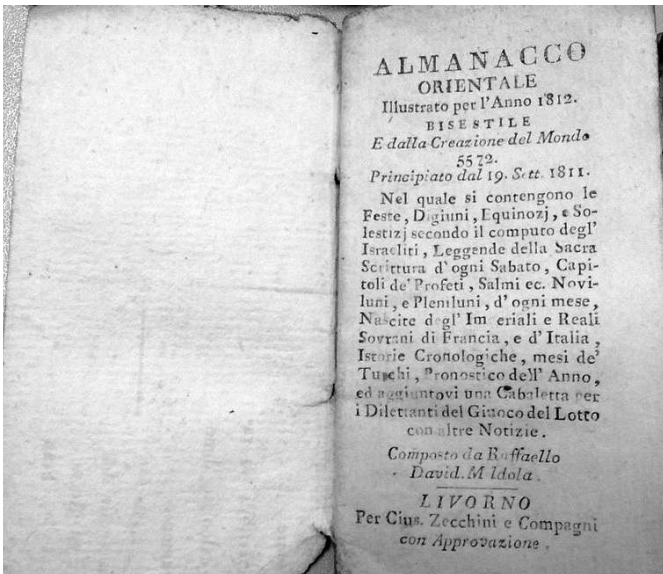 ALMANACCO
ORIENTALE
Illustrato per l'Anno 1812.
BISESTILE
E dalla Creazione del Mondo
5572.
Principiato dal 19. Sett. 1811.
Nel quale si contengono le
Feste, Digiuni, Equinozj, e So-
lestizj secondo il computo degl'
Israeliti, Leggende della Sacra
Scrittura d'ogni Sabato, Capi-
toli de' Profeti, Salmi ec. Novi-
luni, e Pleniluni, d'ogni mese,
Nascite degl' Im eriali e Reali
Sovrani di Francia, e d'Italia,
Istorie Cronologiche, mesi de'
Turchi, Pronostico dell' Anno,
ed aggiuntovi una Cabaletta per
i Dilettanti del Giuoco del Lotto
con altre Notizie.
Composto da Raffaello
David. M ldola.
LIVORNO
Per Cius. Zecchini e Compagni
con Approvazione.